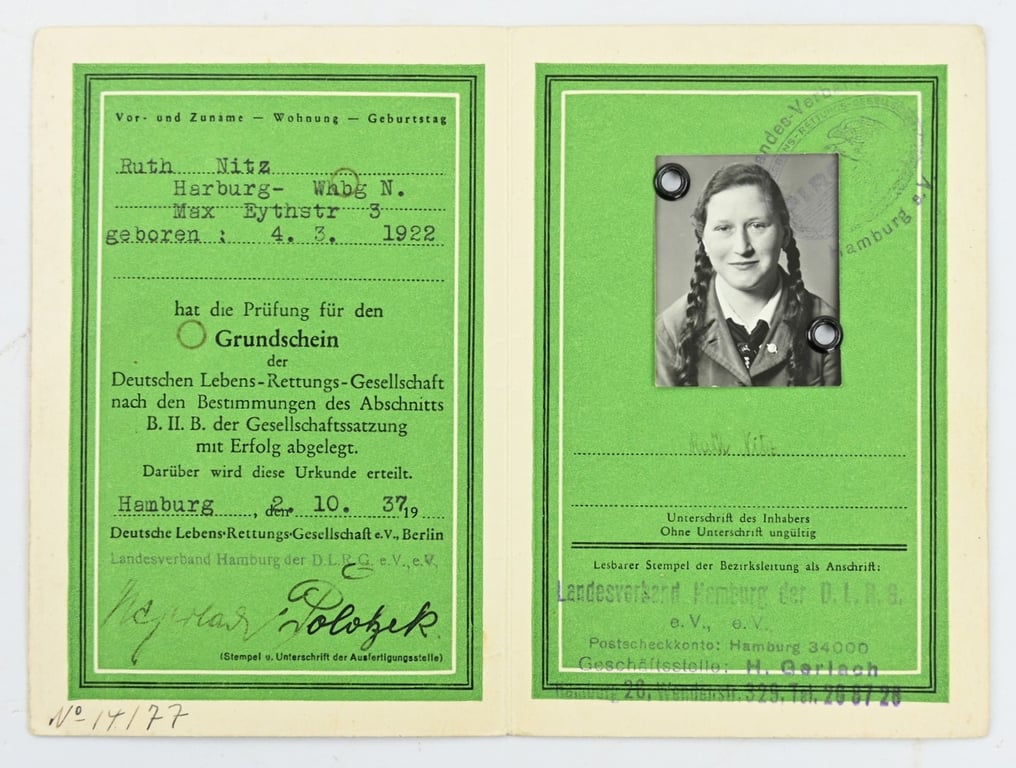 Vor- und Zuname — Wohnung — Geburtstag
Ruth Nitz
Harburg- Whbg N.
Max Eythstr 3
geboren : 4. 3. 1922
hat die Prüfung für den
Grundschein
der
Deutschen Lebens-Rettungs-Gesellschaft
nach den Bestimmungen des Abschnitts
B. II. B. der Gesellschaftssatzung
mit Erfolg abgelegt.
Darüber wird diese Urkunde erteilt.
Hamburg, den 2. 10. 37 19
Deutsche Lebens-Rettungs-Gesellschaft e.V., Berlin
Landesverband Hamburg der D.L.R.G. e.V., e.V,
Polotzek
(Stempel u. Unterschrift der Ausfertigungsstelle)
No 14/77
Landes-Verband
Hamburg e.V.
Ruth Nitz
Unterschrift des Inhabers
Ohne Unterschrift ungültig
Lesbarer Stempel der Bezirksleitung als Anschrift:
Landesverband Hamburg der D. L. R. G.
e. V., e. V.
Postscheckkonto: Hamburg 34000
Geschäftsstelle: H. Gerlach
Hamburg 26, Wendenstr. 329, Tel. 26 87 26